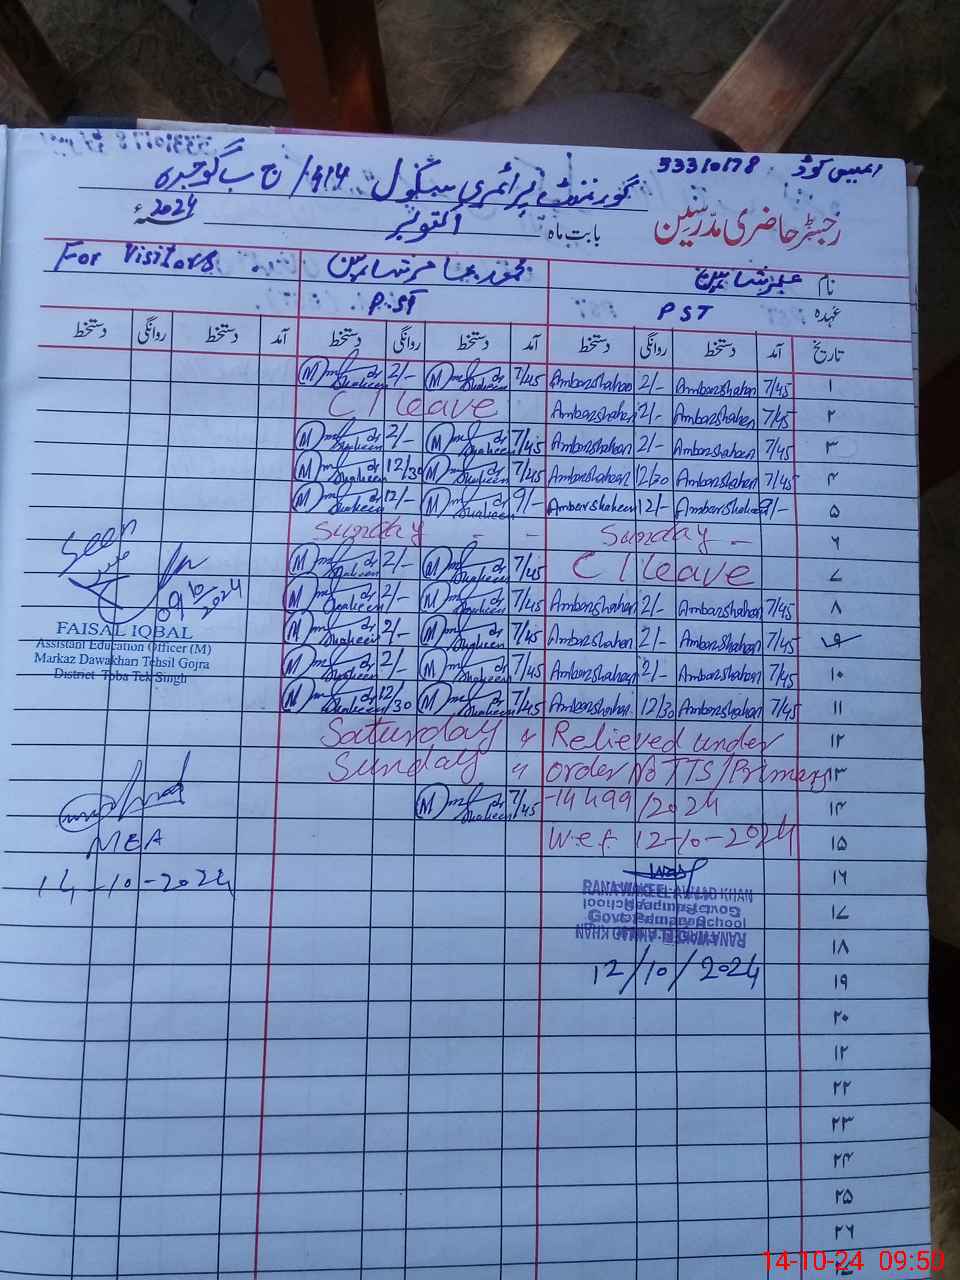 ایمیس کوڈ 33310178
گورنمنٹ پرائمری سکول 414/ ج ب گوجرہ
رجسٹر حاضری مدرسین بابت ماہ اکتوبر 2024ء
نام عنبر شاہین For Visitors
عہدہ PST P.ST
تاریخ آمد دستخط روانگی دستخط آمد دستخط روانگی دستخط آمد دستخط روانگی دستخط
۱ 7/45 Ambarshaheen 2/- Ambarshaheen 7/45 Shaheen 2/- Shaheen
۲ 7/45 Ambarshaheen 2/- Ambarshaheen C/leave
۳ 7/45 Ambarshaheen 2/- Ambarshaheen 7/45 Shaheen 2/- Shaheen
۴ 7/45 Ambarshaheen 12/30 Ambarshaheen 7/45 Shaheen 12/30 Shaheen
۵ 9/- Ambarshaheen 12/- Ambarshaheen 9/- Shaheen 12/- Shaheen
۶ Sunday - Sunday - -
۷ C/leave 7/45 Shaheen 2/- Shaheen
۸ 7/45 Ambarshaheen 2/- Ambarshaheen 7/45 Shaheen 2/- Shaheen
۹ 7/45 Ambarshaheen 2/- Ambarshaheen 7/45 Shaheen 2/- Shaheen
۱۰ 7/45 Ambarshaheen 2/- Ambarshaheen 7/45 Shaheen 2/- Shaheen
۱۱ 7/45 Ambarshaheen 12/30 Ambarshaheen 7/45 Shaheen 12/30 Shaheen
۱۲ Relieved under Saturday
۱۳ order No TTS/Primary Sunday
۱۴ -14499/2024 7/45 Shaheen
۱۵ w.e.f. 12-10-2024
۱۶
۱۷
۱۸
۱۹
۲۰
۲۱
۲۲
۲۳
۲۴
۲۵
۲۶
RANA WAKEEL AHMAD KHAN
Govt. Primary School
12/10/2024
Seen
09/10/2024
FAISAL IQBAL
Assistant Education Officer (M)
Markaz Dawakhari Tehsil Gojra
District Toba Tek Singh
MEA
14-10-2024
14-10-24 09:50